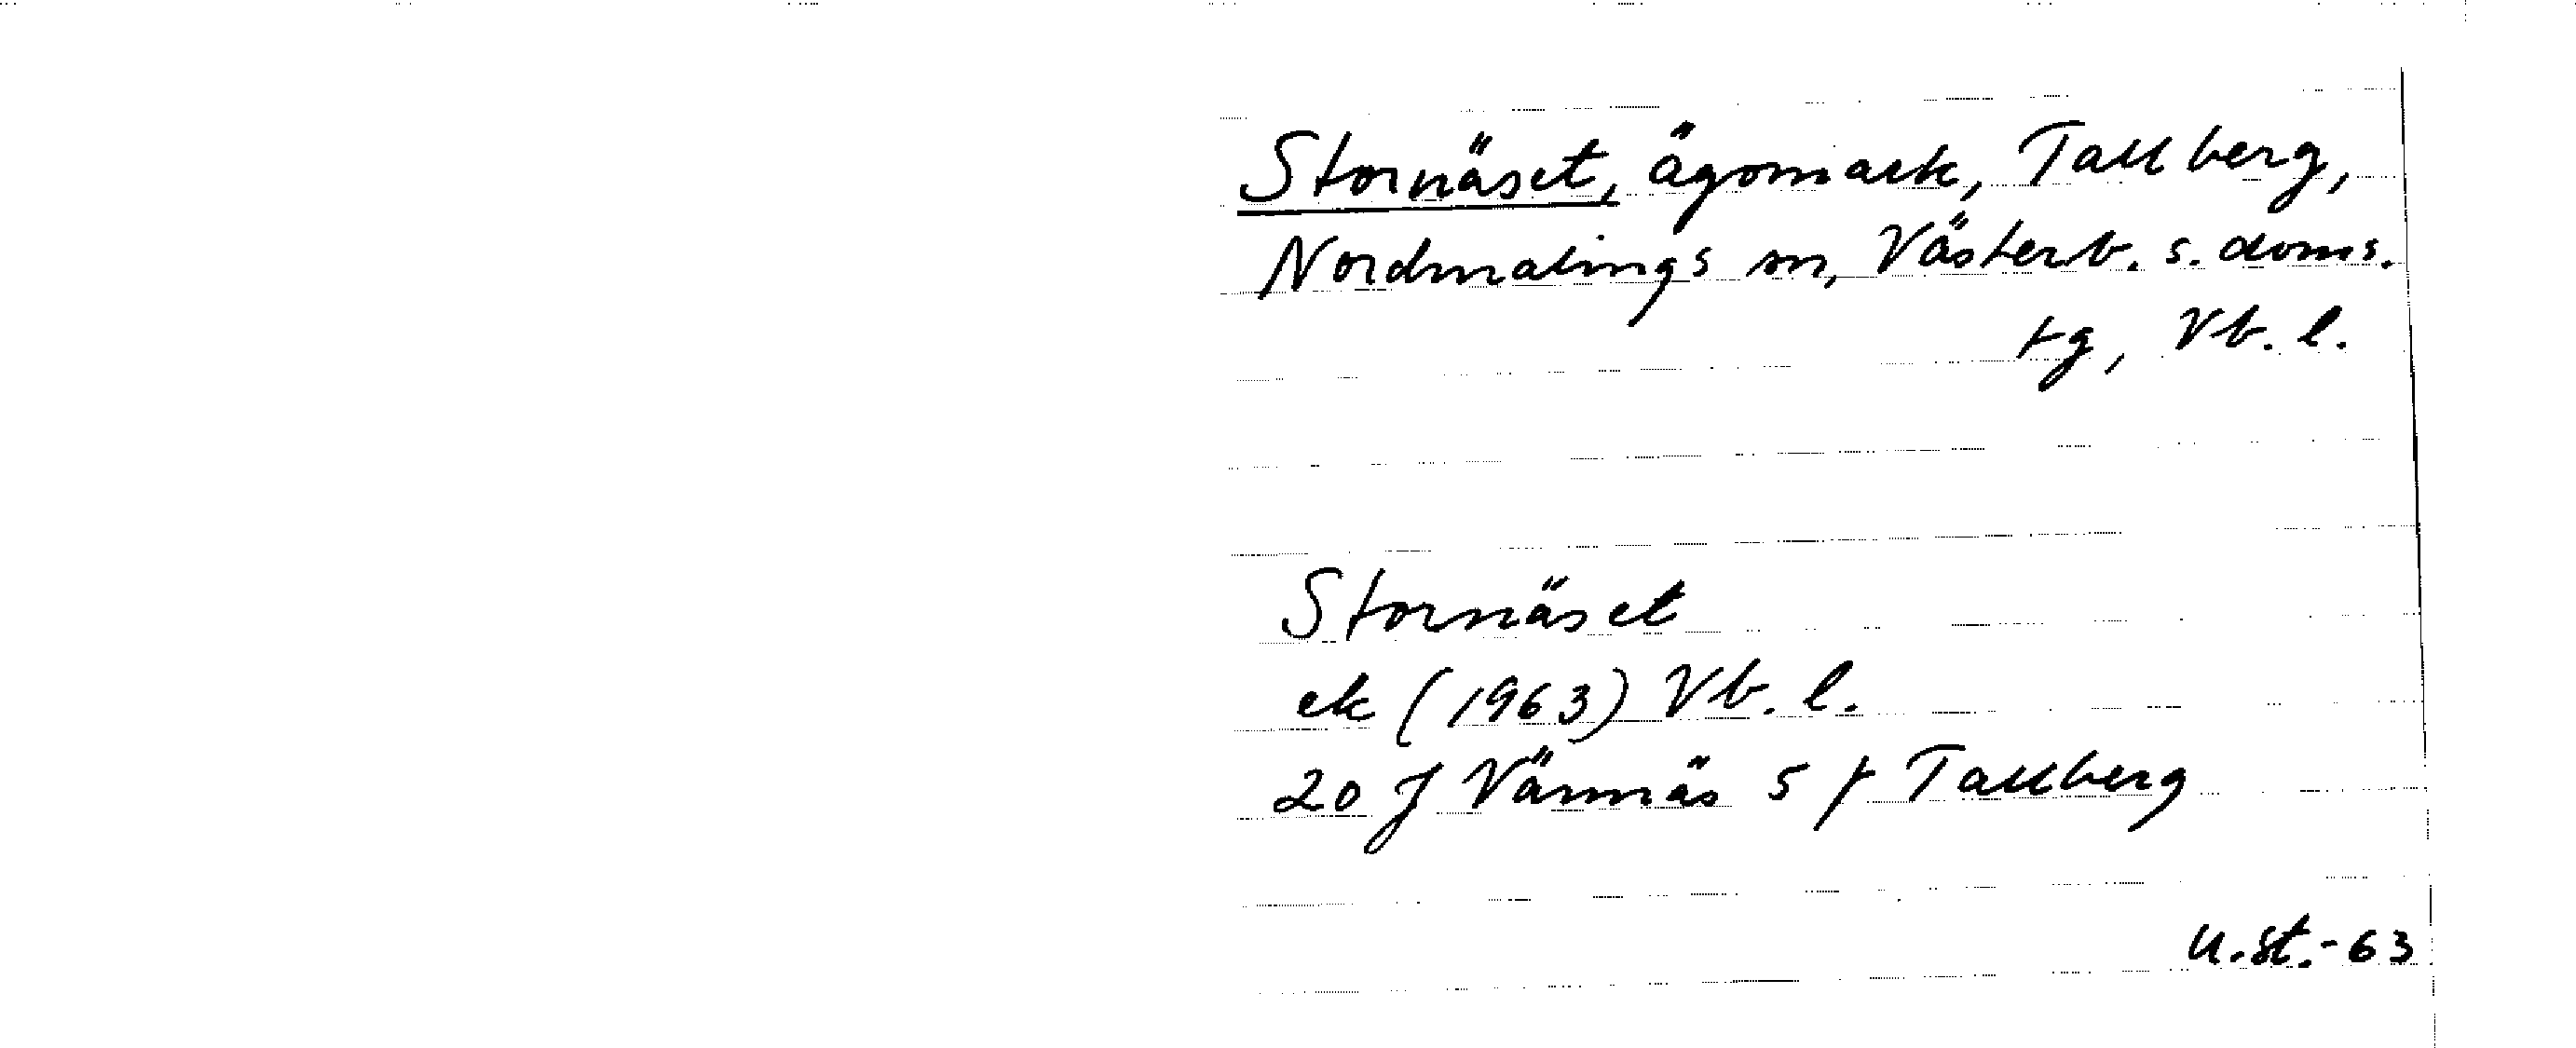 Stornäset, ägomark, Tallberg,
Nordmalings sn, Västerb. s. doms.
tg, Vb. l.
Stornäset
ek (1963) Vb. l.
20 J Vännäs 5 f Tallberg
U.St.-63